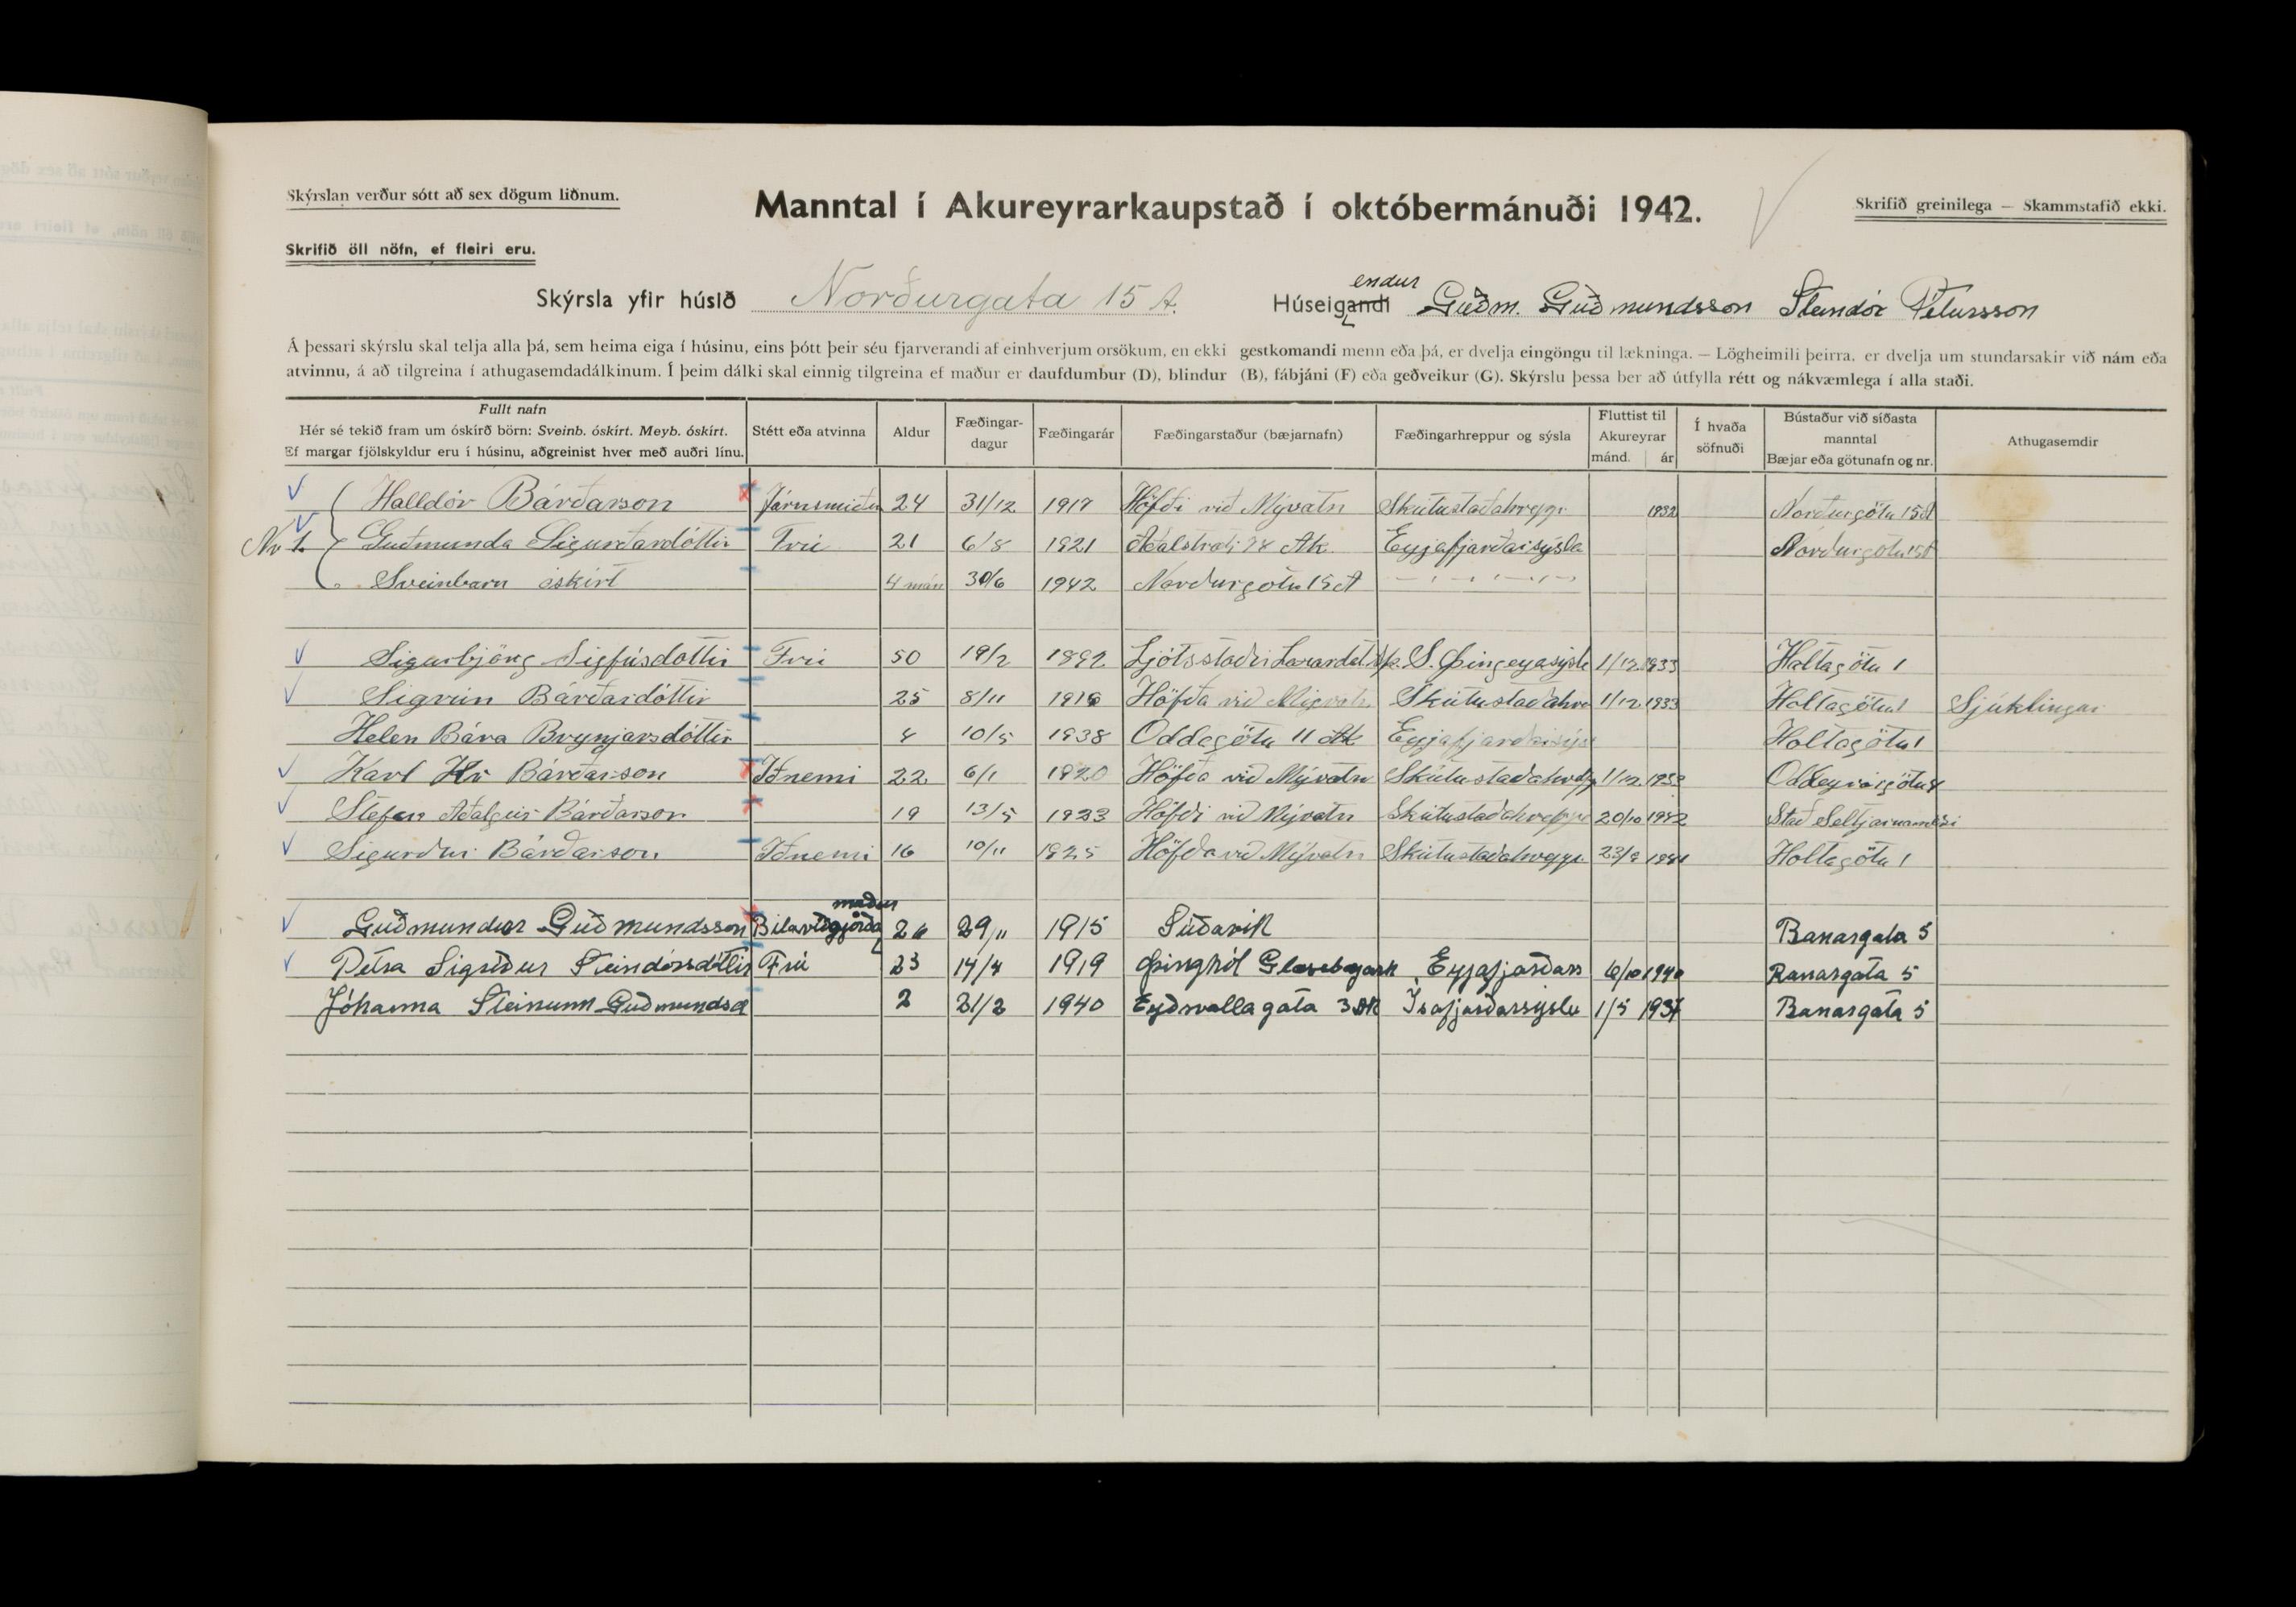 Skýrslan verður sótt að sex dögum liðnum.
Manntal í Akureyrarkaupstað í októbermánuði 1942.
Skrifið greinilega — Skammstafið ekki.
Skrifið öll nöfn, ef fleiri eru.
Skýrsla yfir húsið Norðurgata 15 A.
Húseigandi endur Guðm. Guðmundsson Steindór Pétursson
Á þessari skýrslu skal telja alla þá, sem heima eiga í húsinu, eins þótt þeir séu fjarverandi af einhverjum orsökum, en ekki gestkomandi menn eða þá, er dvelja eingöngu til lækninga. — Lögheimili þeirra, er dvelja um stundarsakir við nám eða
atvinnu, á að tilgreina í athugasemdadálkinum. Í þeim dálki skal einnig tilgreina ef maður er daufdumbur (D), blindur (B), fábjáni (F) eða geðveikur (G). Skýrslu þessa ber að útfylla rétt og nákvæmlega í alla staði.
Fullt nafn
Hér sé tekið fram um óskírð börn: Sveinb. óskírt. Meyb. óskírt.
Ef margar fjölskyldur eru í húsinu, aðgreinist hver með auðri línu.
Stétt eða atvinna
Aldur
Fæðingar-
dagur
Fæðingarár
Fæðingarstaður (bæjarnafn)
Fæðingarhreppur og sýsla
Fluttist til
Akureyrar
mánd. ár
Í hvaða
söfnuði
Bústaður við síðasta
manntal
Bæjar eða götunafn og nr.
Athugasemdir
Halldór Bárðarson Járnsmiður 24 31/12 1917 Höfði við Mývatn Skútustaðahreppr 1932 Norðurgötu 15A
Nr 1. Guðmunda Sigurðardóttir Frú 21 6/8 1921 Aðalstræti Ak. Eyjafjarðarsýsla Norðurgötu 15A
Sveinbarn óskírt 4 mán 30/6 1942 Norðurgötu 15A
Sigurbjörg Sigfúsdóttir Frú 50 19/2 1892 Ljótsstaðir Laxardal S. Þingeyasýsla 1/12 1933 Holtagötu 1
Sigrún Bárðardóttir 25 8/11 1916 Höfða við Mývatn Skútustaðahre 1/12 1933 Holtagötu 1 Sjúklingur
Helen Bára Brynjarsdóttir 4 10/5 1938 Oddagötu 11 Ak Eyjafjarðarsýsl Holtagötu 1
Karl Hr Bárðarson Iðnemi 22 6/1 1920 Höfða við Mývatn Skútustaðahrepp 1/12 1933 Oddeyrargötu
Stefán Aðalgeir Bárðarson 19 13/5 1923 Höfði við Mývatn Skútustaðahreppr 20/10 1942 Stað Seltjarnarnesi
Sigurður Bárðarson Iðnemi 16 10/11 1925 Höfða við Mývatn Skútustaðahreppr 23/9 1941 Holtagötu 1
Guðmundur Guðmundsson Bílaviðgjörða maður 26 29/11 1915 Súðavík Ranargata 5
Pétra Sigríður Steindórsdóttir Frú 23 14/4 1919 Þinghól Eyjafjarðars 6/10 1940 Ranargata 5
Jóhanna Steinunn Guðmundsd 2 21/2 1940 Eyðsvallagata 3 Ísafjarðarsýslu 1/5 1937 Ranargata 5